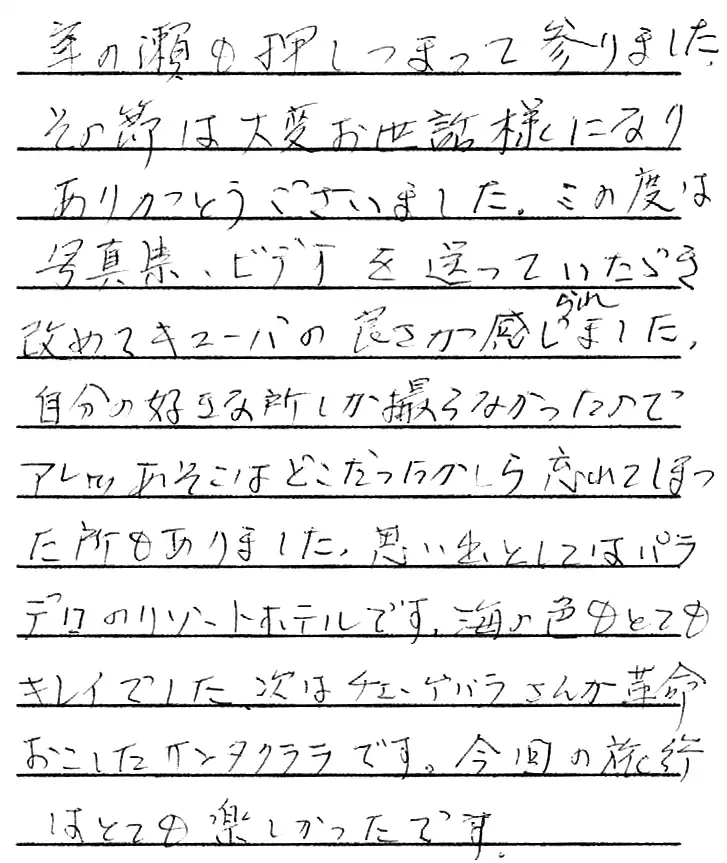 年の瀬も押しつまって参りました。
その節は大変お世話様になり
ありがとうございました。この度は
写真集、ビデオを送っていただき
改めてキューバの良さが感じられました。
自分の好きな所しか撮らなかったので
アレッあそこはどこだったかしら忘れてしまっ
た所もありました。思い出としてはバラ
デロのリゾートホテルです。海の色もとても
キレイでした。次はチェ・ゲバラさんが革命
おこしたサンタクララです。今回の旅行
はとても楽しかったです。